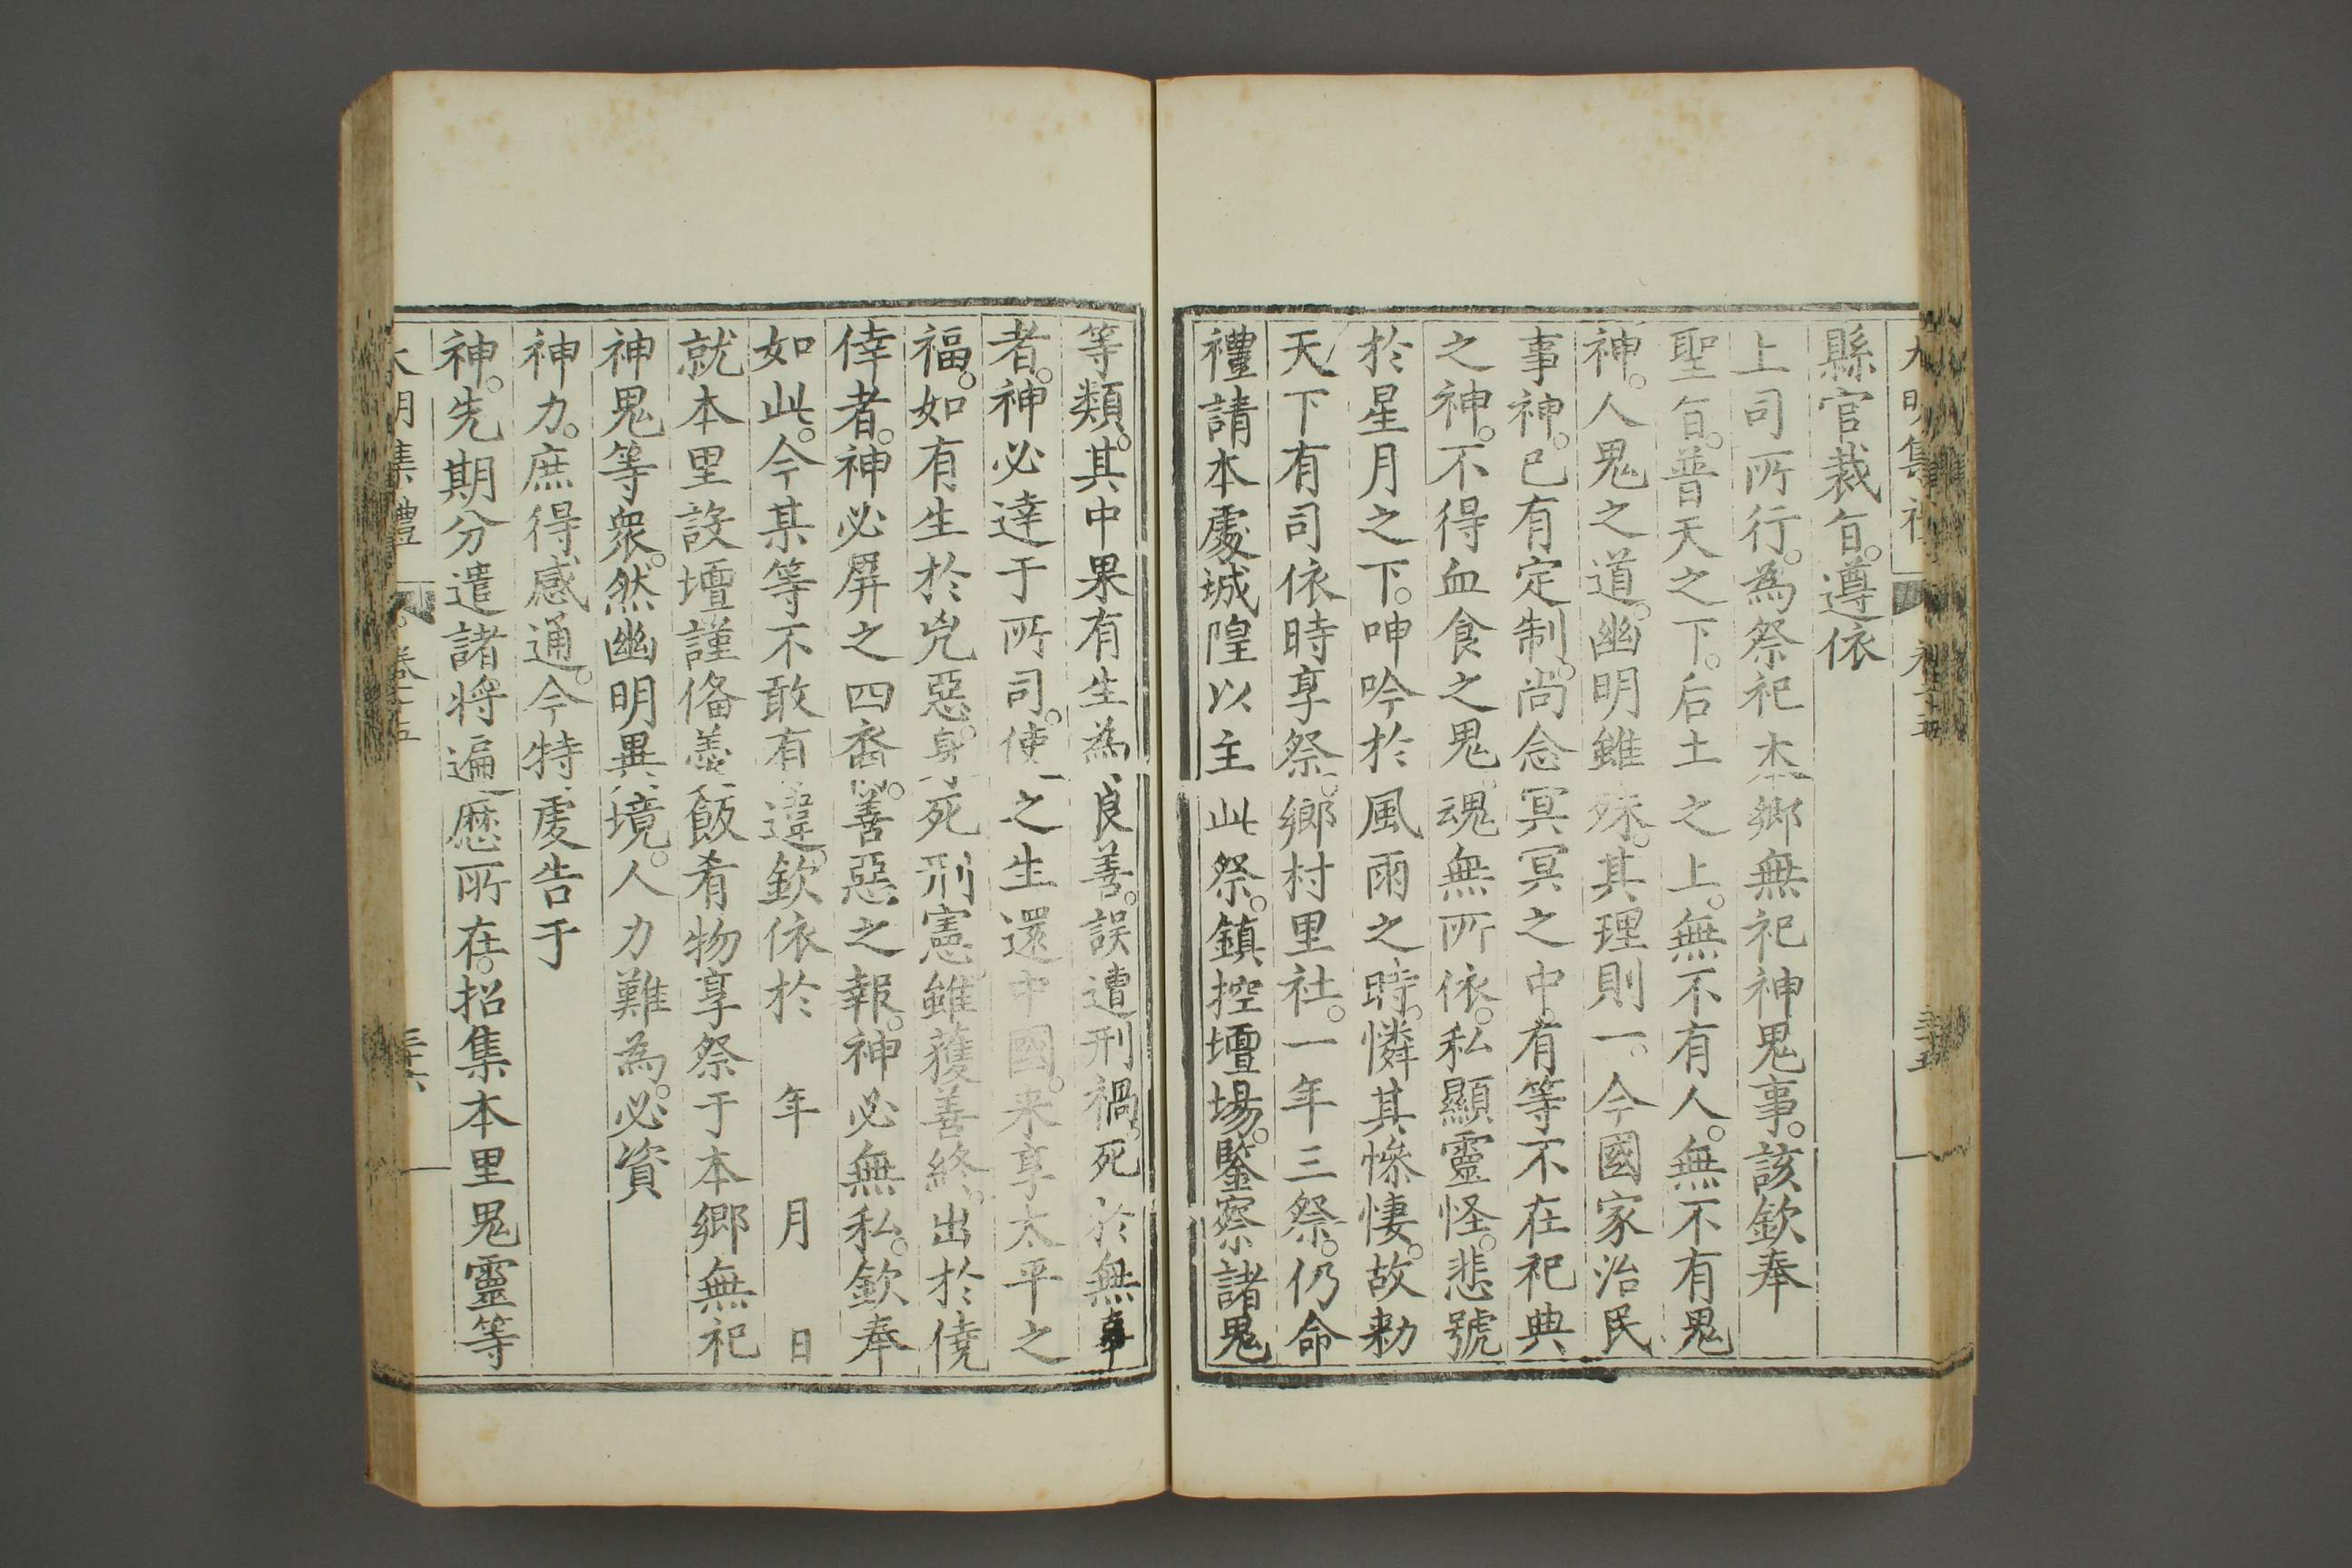 大明集禮 卷十五 三十五
縣官裁旨。遵依
上司所行。為祭祀本鄉無祀神鬼事。該欽奉
聖旨。普天之下。后土之上。無不有人。無不有鬼
神。人鬼之道。幽明雖殊。其理則一。今國家治民
事神。已有定制。尚念冥冥之中。有等不在祀典
之神。不得血食之鬼。魂無所依。私顯靈怪。悲號
於星月之下。呻吟於風雨之時。憐其慘悽。故勑
天下有司依時享祭。鄉村里社。一年三祭。仍命
禮請本處城隍以主此祭。鎮控壇場。鑒察諸鬼
等類。其中果有生為良善。誤遭刑禍。死於無辜
者。神必達于所司。使之生還中國。来享太平之
福。如有生於兇惡。身死刑憲。雖獲善終。出於僥
倖者。神必屏之四裔。善惡之報。神必無私。欽奉
如此。今某等不敢有違。欽依於 年 月 日
就本里設壇謹俻羹飯肴物享祭于本鄉無祀
神鬼等衆。然幽明異境。人力難為。必資
神力。庶得感通。今特虔告于
神。先期分遣諸將遍歷所在。招集本里鬼靈等
大明集禮 卷十五 三十六